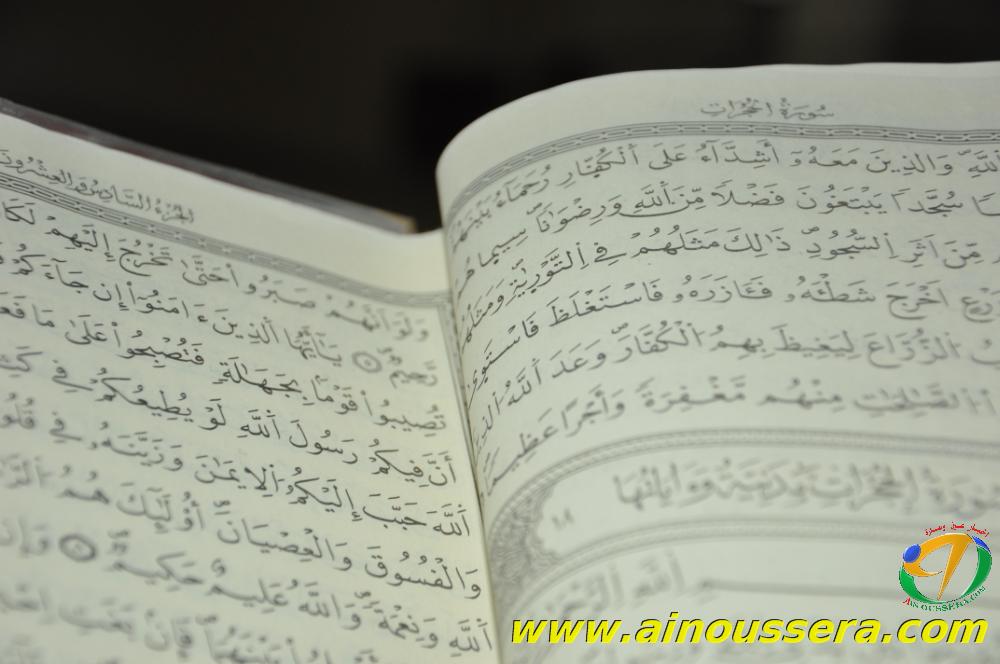 سورة الحجرات
وَالذِينَ مَعَهُۥٓ أَشِدَّآءُ عَلَى اَلْكُفّ۪ارِ رُحَمَآءُ بَيْنَهُمْ
سُجَّداٗ يَبْتَغُونَ فَضْلاٗ مِّنَ اَللَّهِ وَرِضْوَٰناٗ سِيمَاهُمْ
مِّنَ اَثَرِ اِلسُّجُودِ ذَٰلِكَ مَثَلُهُمْ فِے اِلتَّوْر۪يٰةِ وَمَثَلُهُمْ
اَخْرَجَ شَطْـَٔهُۥ فَـَٔازَرَهُۥ فَاسْتَغْلَظَ فَاسْتَو۪يٰ
اُلزُّرَّاعَ لِيَغِيظَ بِهِمُ اُلْكُفَّارَ وَعَدَ اَللَّهُ اُلذِينَ
اُالصَّٰلِحَٰتِ مِنْهُم مَّغْفِرَةٗ وَأَجْراً عَظِيماٗ
سورة الحجرات مدنية وءاياتها
١٨
الجزء السادس والعشرون
وَلَوَ اَنَّهُمْ صَبَرُواْ حَتَّىٰ تَخْرُجَ إِلَيْهِمْ لَكَانَ
رَّحِيمٞ ٥ يَٰٓأَيُّهَا اَلذِينَ ءَامَنُوٓاْ إِن جَآءَكُمْ
تُصِيبُواْ قَوْماَۢ بِجَهَٰلَةٖ فَتُصْبِحُواْ عَلَىٰ مَا فَعَلْتُمْ
أَنَّ فِيكُمْ رَسُولَ اَللَّهِ لَوْ يُطِيعُكُمْ فِے كَثِيرٖ
اَللَّهَ حَبَّبَ إِلَيْكُمُ اُلِايمَٰنَ وَزَيَّنَهُۥ فِے قُلُوبِكُمْ
وَالْفُسُوقَ وَالْعِصْيَانَ أُوْلَٰٓئِكَ هُمُ اُلرَّٰشِدُونَ
اَللَّهِ وَنِعْمَةٗ وَاللَّهُ عَلِيمٌ حَكِيمٞ ٨ وَإِن
أخبار عين وسارة
AINOUSSERA.COM
www.ainoussera.com